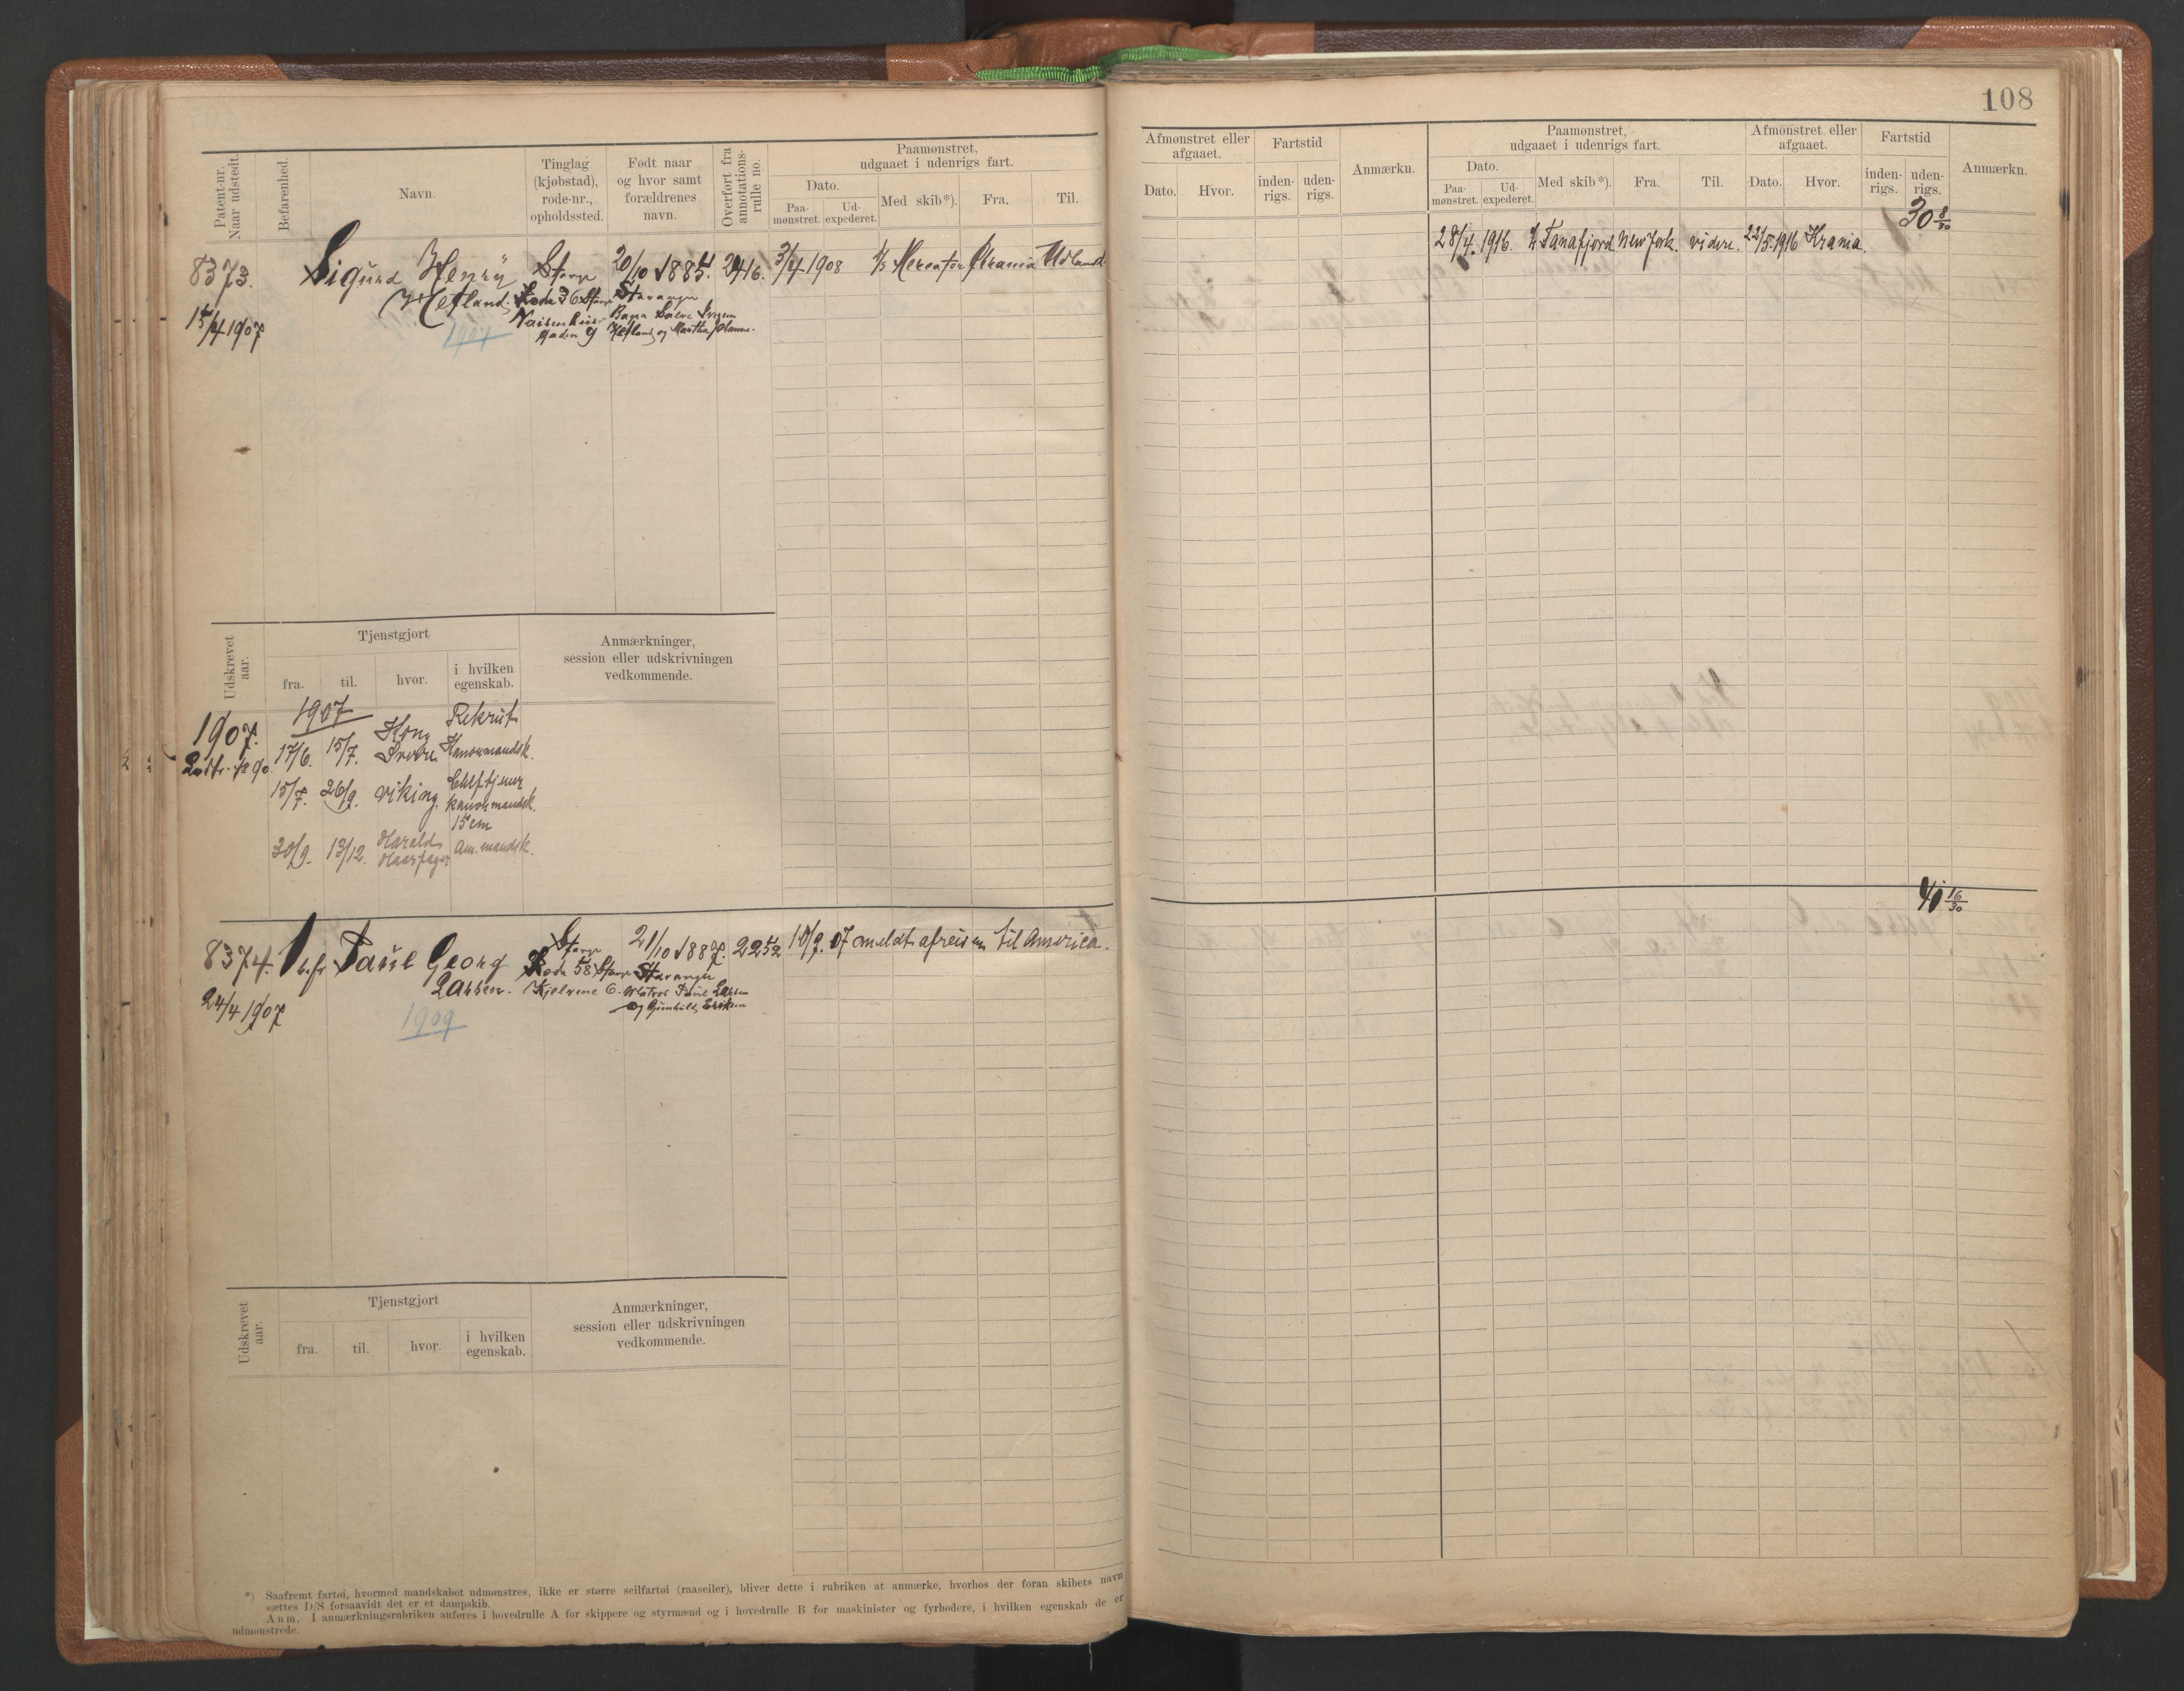 108
Patent-nr. Naar udstedt.
Befarenhed.
Navn.
Tinglag (kjøbstad), rode-nr., opholdssted.
Født naar og hvor samt forældrenes navn.
Overført fra annotations-rulle no.
Paamønstret, udgaaet i udenrigs fart.
Dato.
Paa-mønstret.
Ud-expederet.
Med skib*).
Fra.
Til.
Afmønstret eller afgaaet.
Dato.
Hvor.
Fartstid
inden-rigs.
uden-rigs.
Anmærkn.
Paamønstret, udgaaet i udenrigs fart.
Dato.
Paa-mønstret.
Ud-expederet.
Med skib*).
Fra.
Til.
Afmønstret eller afgaaet.
Dato.
Hvor.
Fartstid
inden-rigs.
uden-rigs.
Anmærkn.
30 8/30
8373.
15/4 1907
Sigurd Henry
Hetland.
Stavgr
Rode 36 Stavgr
Vaisenhus-
gaden 9
20/10 1885.
Stavanger
Hetland og Martha Johanne.
2416.
3/4 1908
Mercator
Krania
Udland
28/4. 1916.
Tanafjord
New York.
videre.
22/5. 1916
Krania.
Udskrevet aar.
Tjenstgjort
fra.
til.
hvor.
i hvilken egenskab.
Anmærkninger, session eller udskrivningen vedkommende.
1907.
1907
17/6.
15/7.
Kong
Sverre
Rekrut
Kanonmandsk.
15/7.
26/9.
Viking.
kanonmandsk.
15 cm
30/9.
13/12.
Harald
Haarfager
Am. mandsk.
40 16/30
8374.
24/4 1907
Paul Georg
Larsen.
1909
Stavgr
Rode 58 Stavgr
Kjelvene 6.
21/10 1887.
Stavanger
Matros Paul Larsen
og Gunhild Eriksen
2252
10/9. 07 meldt afreisen til America.
Udskrevet aar.
Tjenstgjort
fra.
til.
hvor.
i hvilken egenskab.
Anmærkninger, session eller udskrivningen vedkommende.
*) Saafremt fartøi, hvormed mandskabet udmønstres, ikke er større seilfartøi (raaseiler), bliver dette i rubriken at anmærke, hvorhos der foran skibets navn
sættes D/S forsaavidt det er et dampskib.
Anm. I anmærkningsrubriken anføres i hovedrulle A for skippere og styrmænd og i hovedrulle B for maskinister og fyrbødere, i hvilken egenskab de er
udmønstrede.